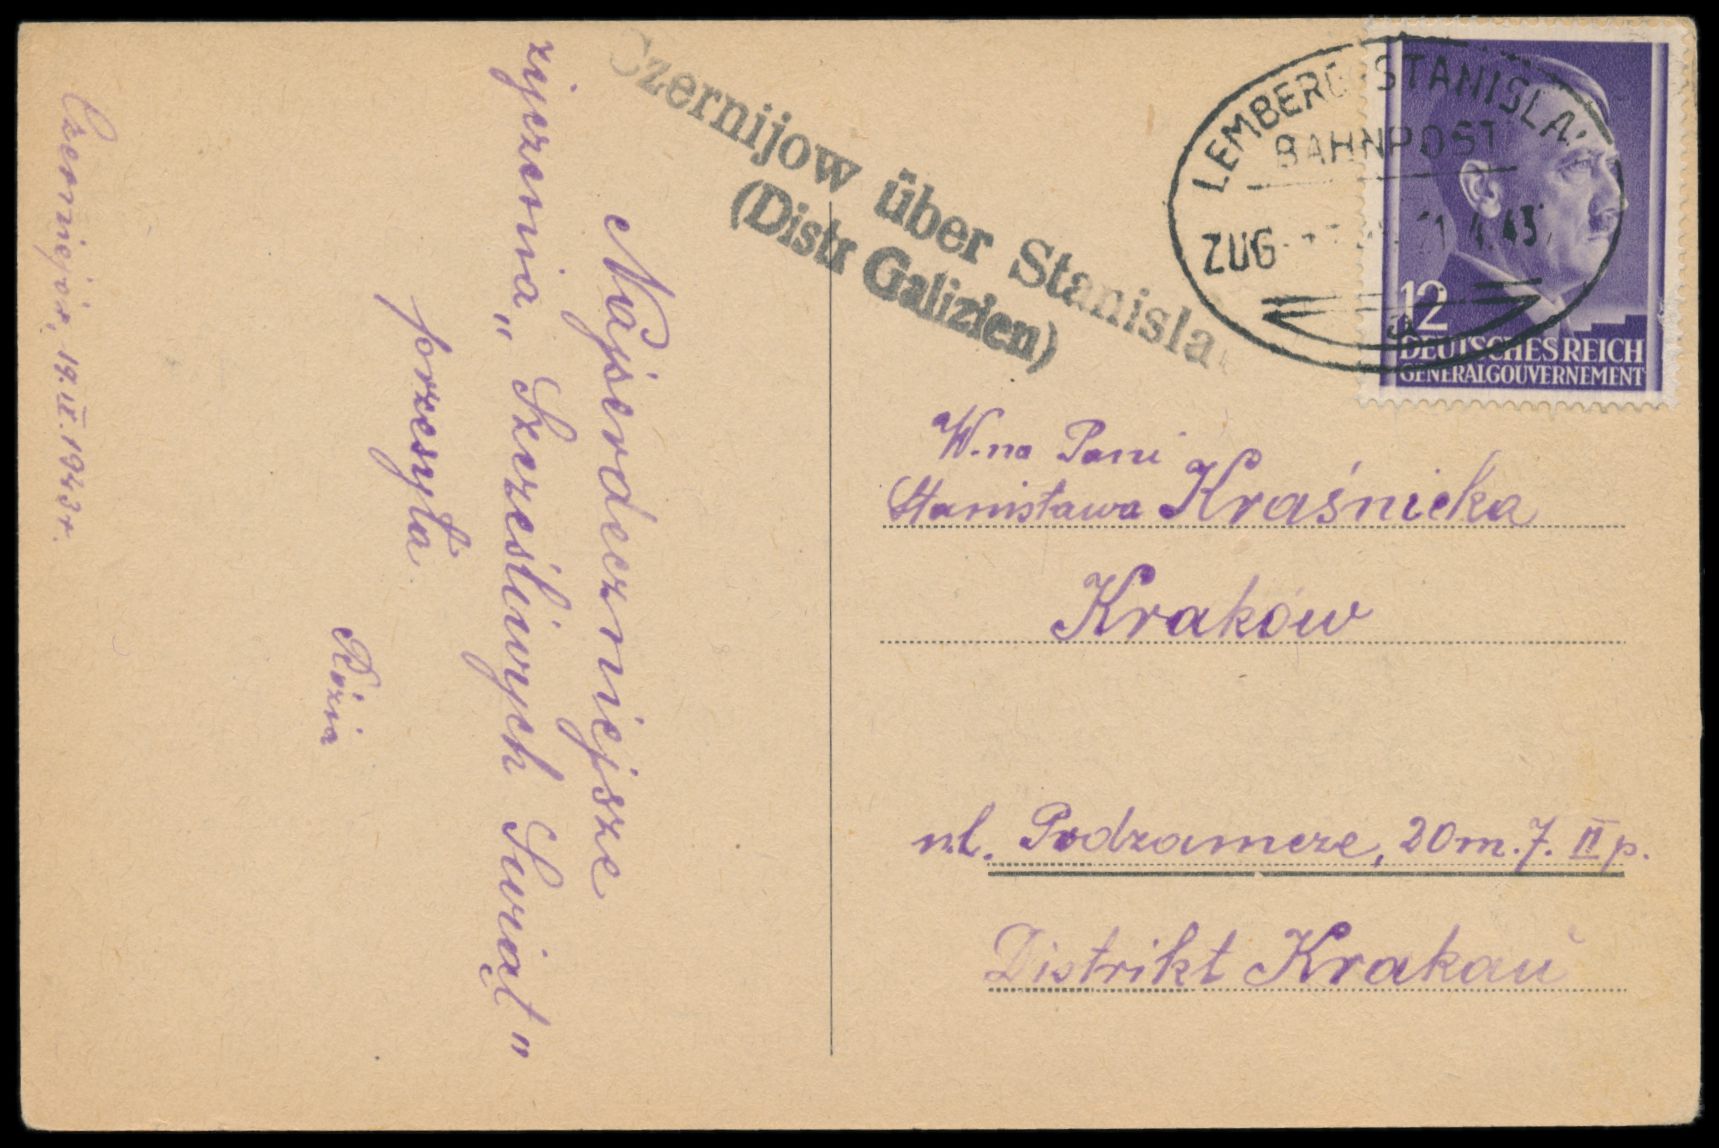 Czerniejów, 19.IV.1943 r.
Najserdeczniejsze
życzenia „Szczęśliwych Świąt"
przesyła
Rózia
Czernijow über Stanisla
(Distr Galizien)
LEMBERG-STANISLA
BAHNPOST
ZUG 21.4.43
a
12
DEUTSCHES REICH
GENERALGOUVERNEMENT
W.na Pani
Stanisława Kraśnicka
Kraków
ul. Podzamcze, 20 m. 7. II p.
Distrikt Krakau